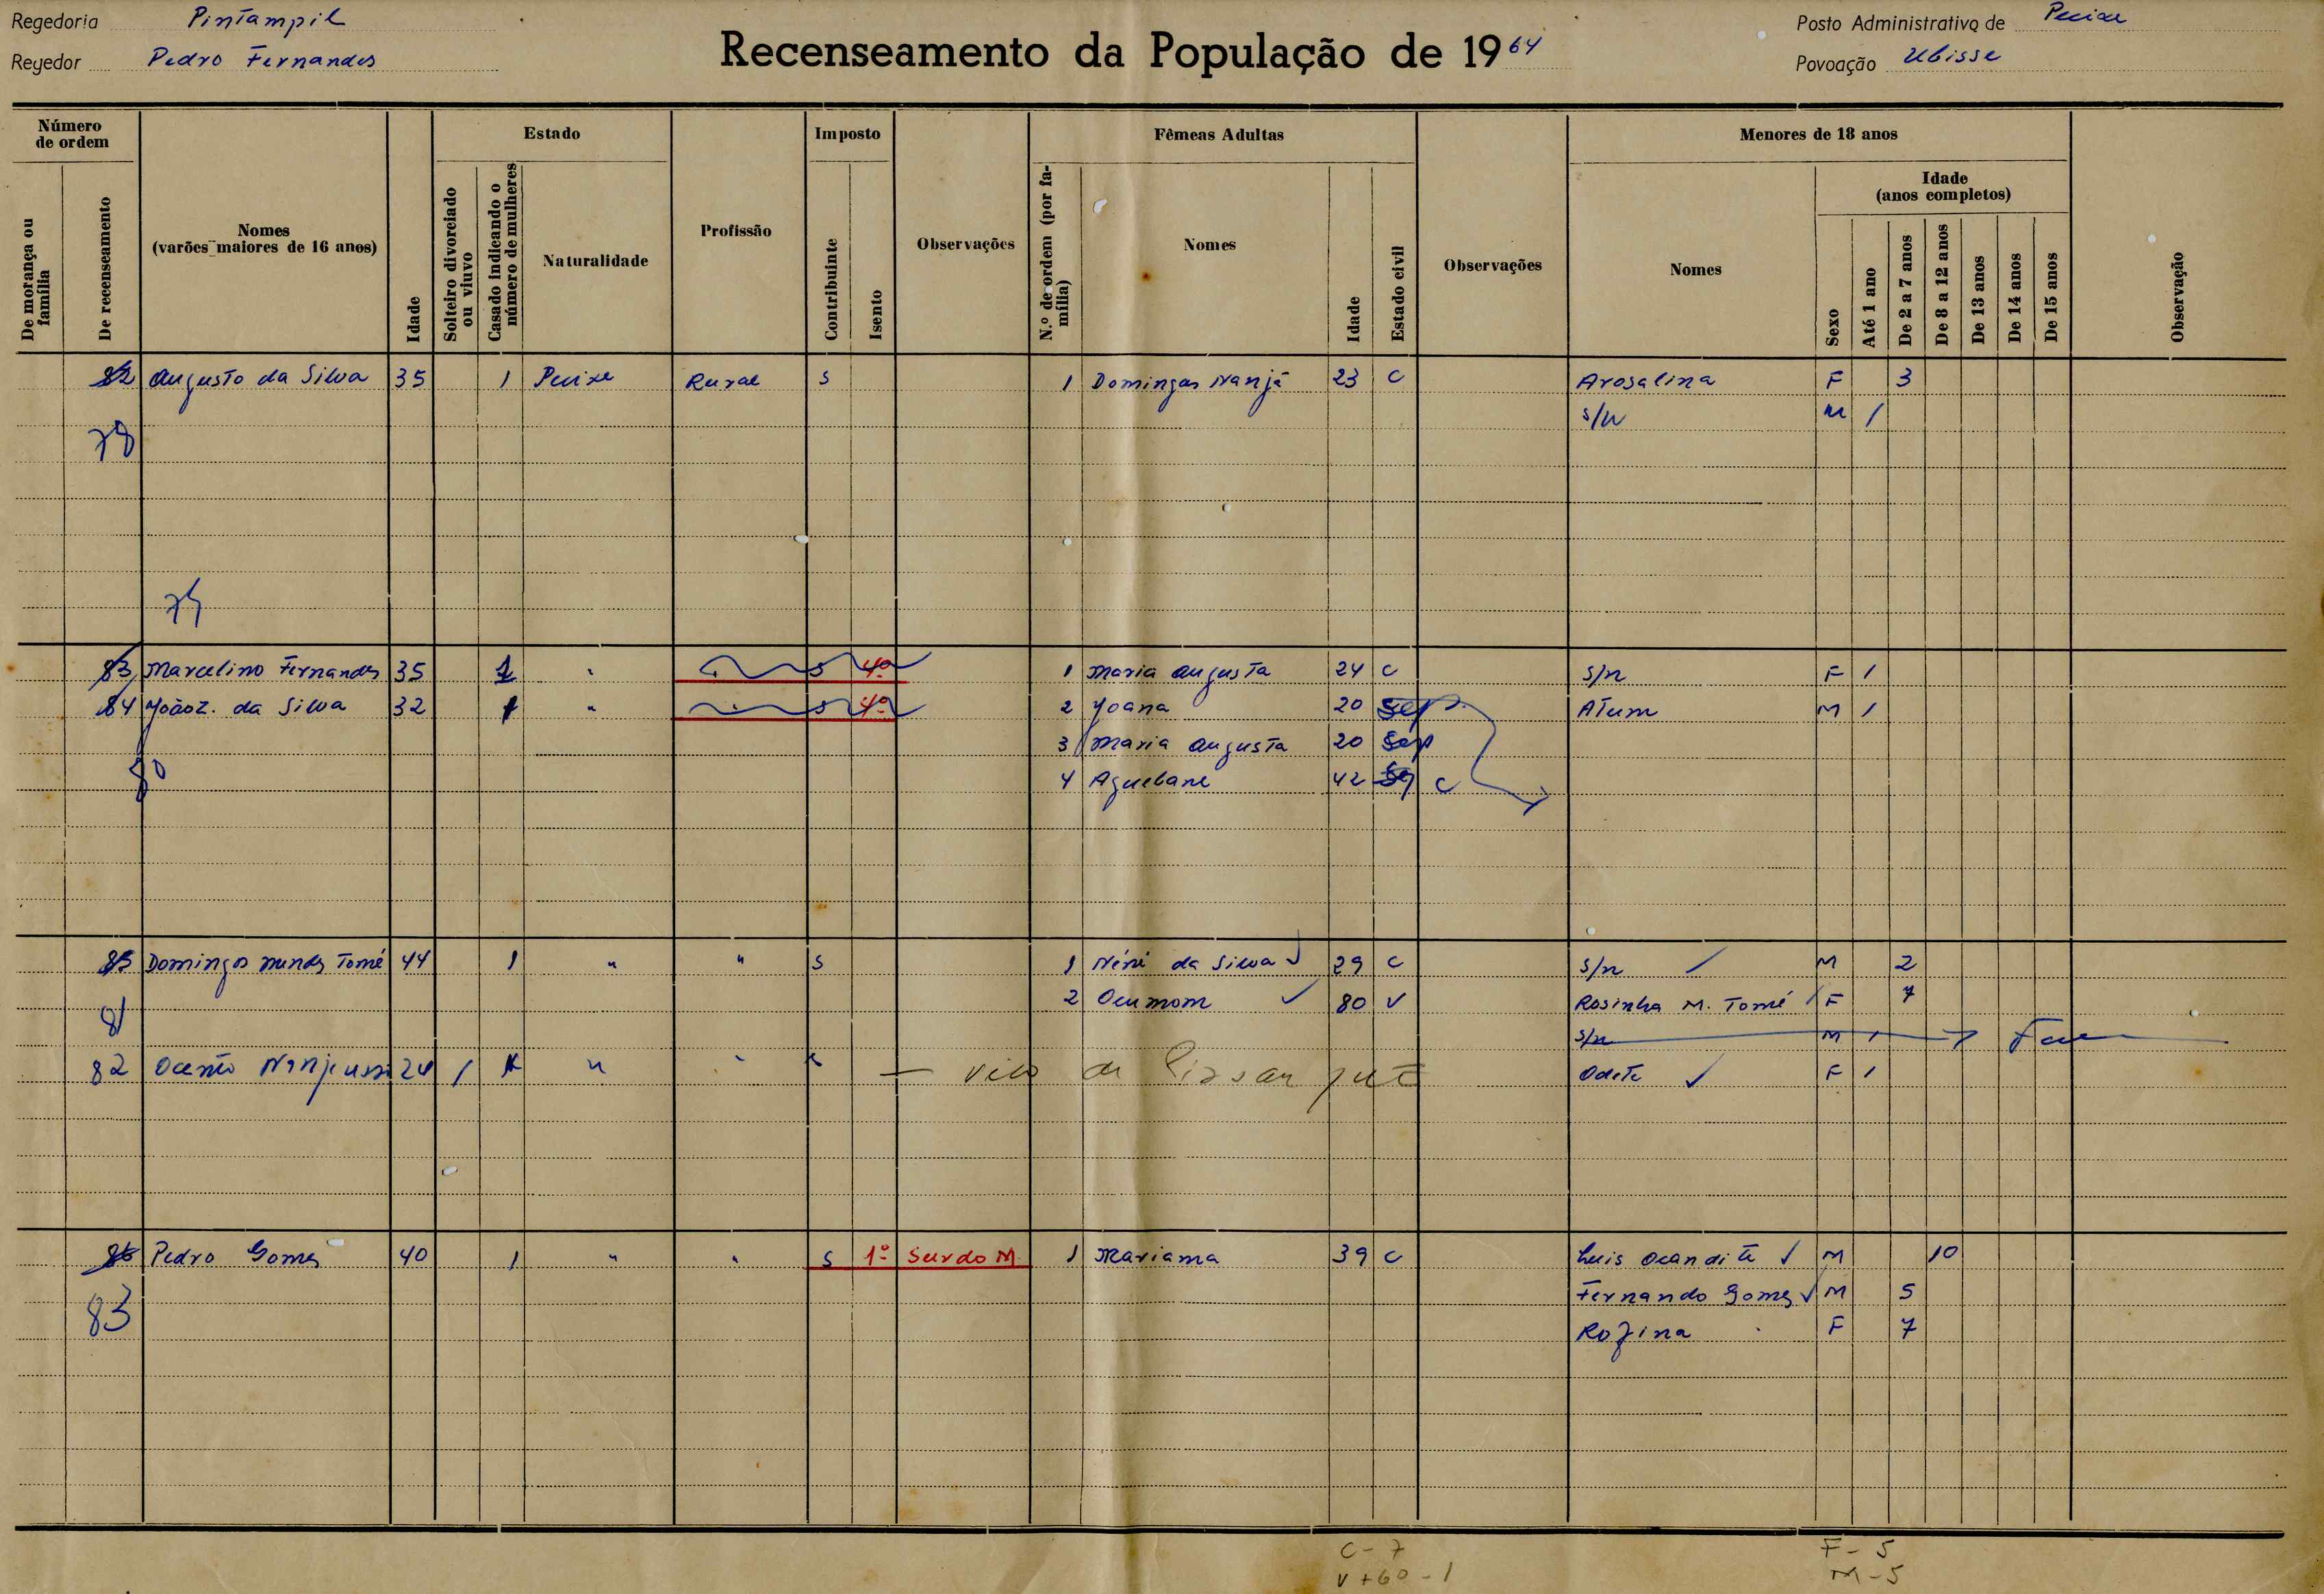 Regedoria Pintampil
Regedor Pedro Fernandes
Recenseamento da População de 1964
Posto Administrativo de Pecixe
Povoação Ubisse
Número de ordem
De morança ou família
De recenseamento
Nomes (varões maiores de 16 anos)
Idade
Estado
Solteiro divorciado ou viuvo
Casado indicando o número de mulheres
Naturalidade
Profissão
Imposto
Contribuinte
Isento
Observações
Fêmeas Adultas
N.º de ordem (por família)
Nomes
Idade
Estado civil
Observações
Menores de 18 anos
Nomes
Sexo
Idade (anos completos)
Até 1 ano
De 2 a 7 anos
De 8 a 12 anos
De 13 anos
De 14 anos
De 15 anos
Observação
82 Augusto da Silva 35 1 Pecixe Rural S 1 Domingas Nanjá 23 C Arosalina F 3
S/N M 1
78
79
83 Marcelino Fernandes 35 1 " " S 4º 1 Maria Augusta 24 C S/n F 1
84 João Z. da Silva 32 1 " " S 4º 2 Joana 20 Sep Atum M 1
3 Maria Augusta 20 Sep
80 4 Aguebane 42 C
85 Domingos Mendes Tomé 44 1 " " S 1 Néné da Silva 29 C S/n M 2
81 2 Ocumom 80 V Rosinha M. Tomé F 7
S/n M 1
82 24 1 " " Odete F 1
86 Pedro Gomes 40 1 " " S 1º Surdo M. 1 Mariama 39 C Luis Ocandite M 10
83 Fernando Gomes M 5
Rofina F 7
C - 7
V + 60 - 1
F - 5
M - 5